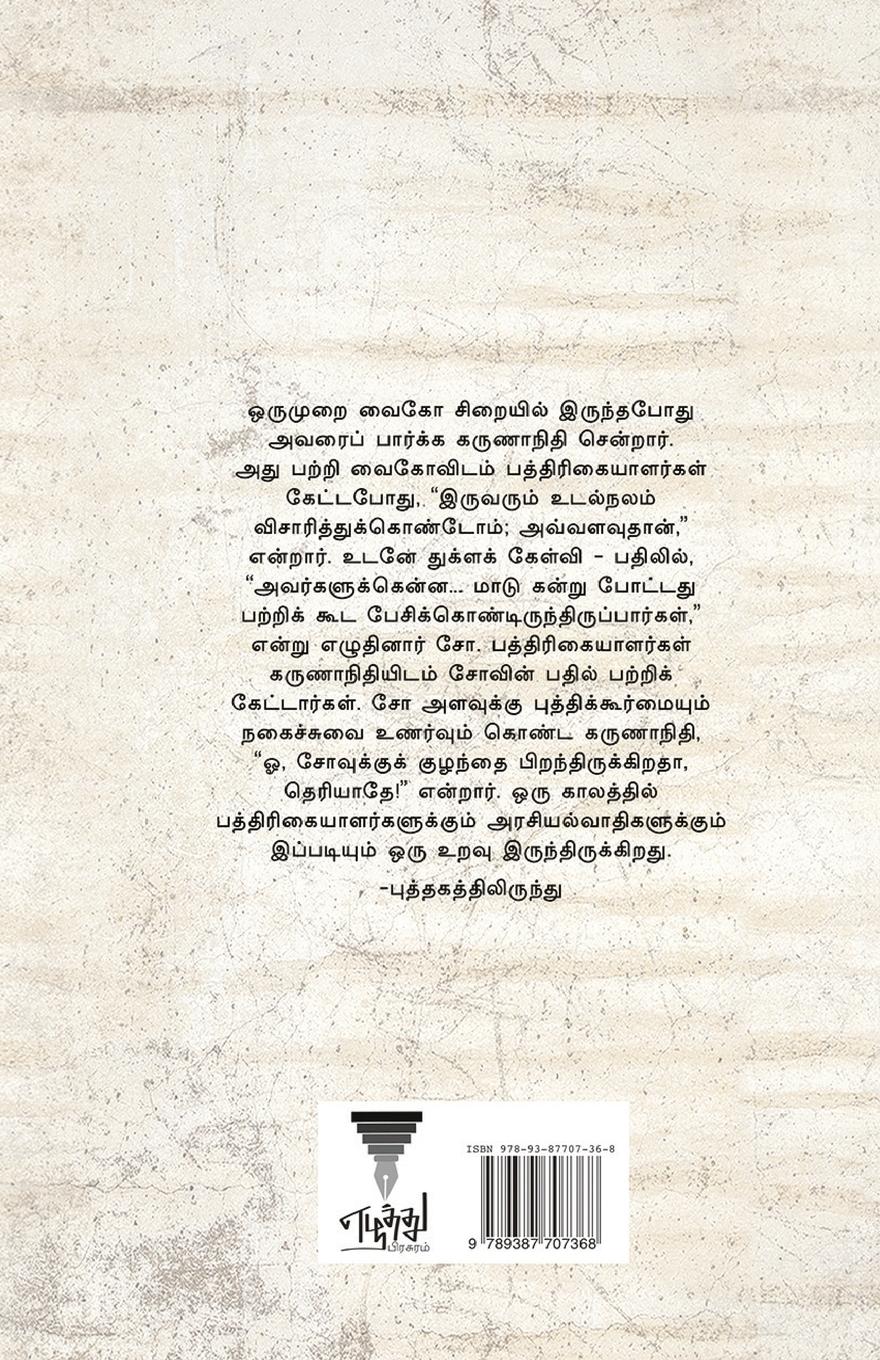 ஒருமுறை வைகோ சிறையில் இருந்தபோது
அவரைப் பார்க்க கருணாநிதி சென்றார்.
அது பற்றி வைகோவிடம் பத்திரிகையாளர்கள்
கேட்டபோது, “இருவரும் உடல்நலம்
விசாரித்துக்கொண்டோம்; அவ்வளவுதான்,”
என்றார். உடனே துக்ளக் கேள்வி - பதிலில்,
“அவர்களுக்கென்ன... மாடு கன்று போட்டது
பற்றிக் கூட பேசிக்கொண்டிருந்திருப்பார்கள்,”
என்று எழுதினார் சோ. பத்திரிகையாளர்கள்
கருணாநிதியிடம் சோவின் பதில் பற்றிக்
கேட்டார்கள். சோ அளவுக்கு புத்திக்கூர்மையும்
நகைச்சுவை உணர்வும் கொண்ட கருணாநிதி,
“ஓ, சோவுக்குக் குழந்தை பிறந்திருக்கிறதா,
தெரியாதே!” என்றார். ஒரு காலத்தில்
பத்திரிகையாளர்களுக்கும் அரசியல்வாதிகளுக்கும்
இப்படியும் ஒரு உறவு இருந்திருக்கிறது.
-புத்தகத்திலிருந்து
எழுத்து
பிரசுரம்
ISBN 978-93-87707-36-8
9 789387 707368